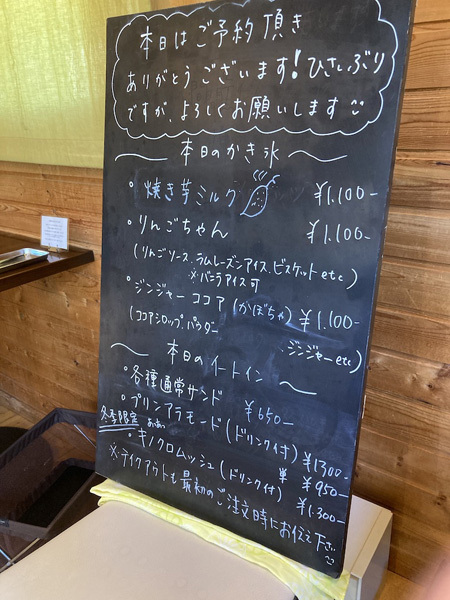 本日はご予約頂き
ありがとうございます!ひさしぶり
ですが、よろしくお願いします
本日のかき氷
・焼き芋ミルク ¥1.100-
・りんごちゃん ¥1.100-
(りんごソース、ラムレーズンアイス、ビスケットetc)
※バニラアイス可
・ジンジャーココア(かぼちゃ) ¥1.100-
(ココアシロップ、パウダー ジンジャーetc)
本日のイートイン
・各種通常サンド ¥650-
・プリンアラモード(ドリンク付) ¥1300-
冬季限定
・キノクロムッシュ(ドリンク付) ¥950-
¥1.300-
※テイクアウトも最初のご注文時にお伝え下さい